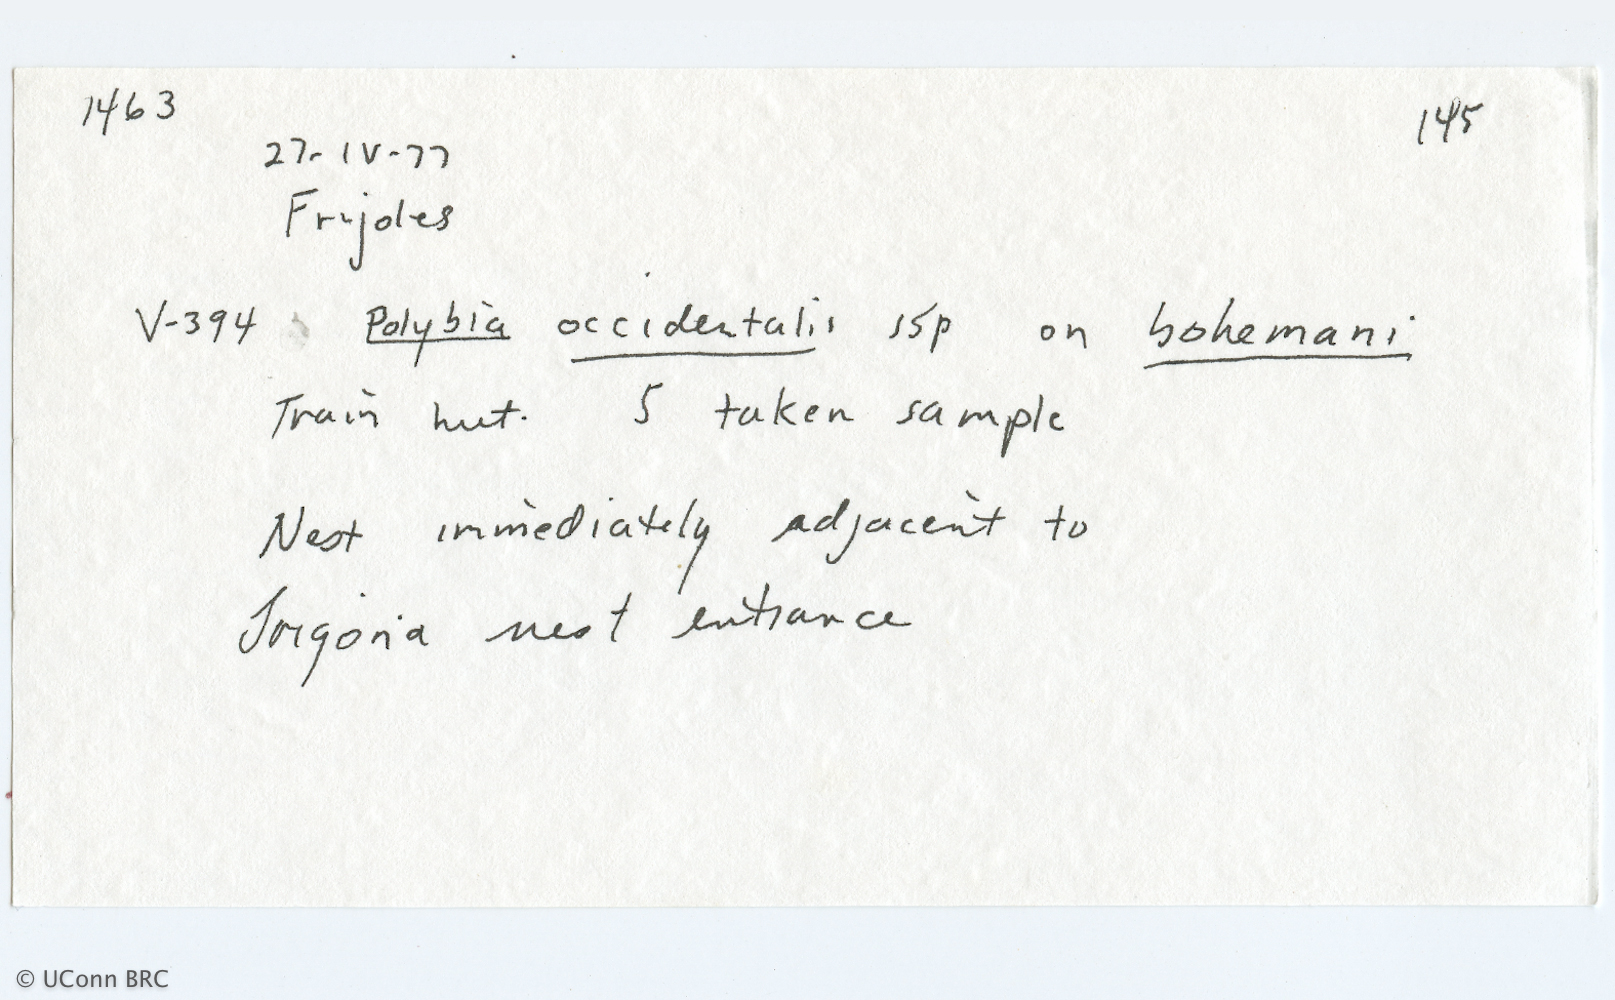 1463
145
27-IV-77
Frijoles
V-394 Polybia occidentalis ssp on bohemani
Train hut. 5 taken sample
Nest immediately adjacent to
Trigona nest entrance
© UConn BRC